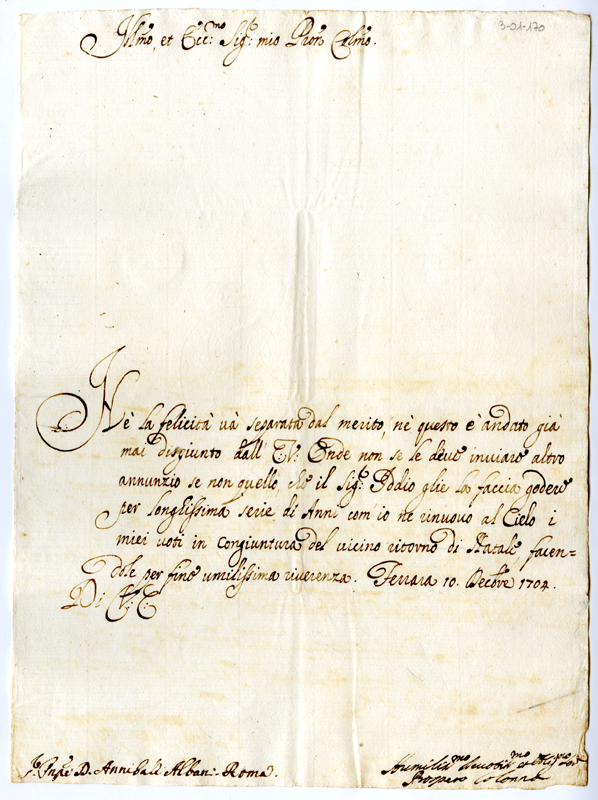 3-01-170
Illmo, et Ecc:mo Sig:r mio Pron Colmo.
Nè la felicità và separata dal merito, nè questo è andato già
mai disgiunto dall' E: V: Onde non se le deue inuiare altro
annunzio se non quello, che il Sig:r Iddio glie la faccia godere
per longhissima serie di Anni com' io ne rinuouo al Cielo i
miei uoti in congiuntura del uicino ritorno di Natale facen-
dole per fine umilissima riuerenza. Ferrara 10. Decbre 1704.
Di V: E:
D. Annibale Albani. Roma.
Humiliss:mo
Prospero Colonna